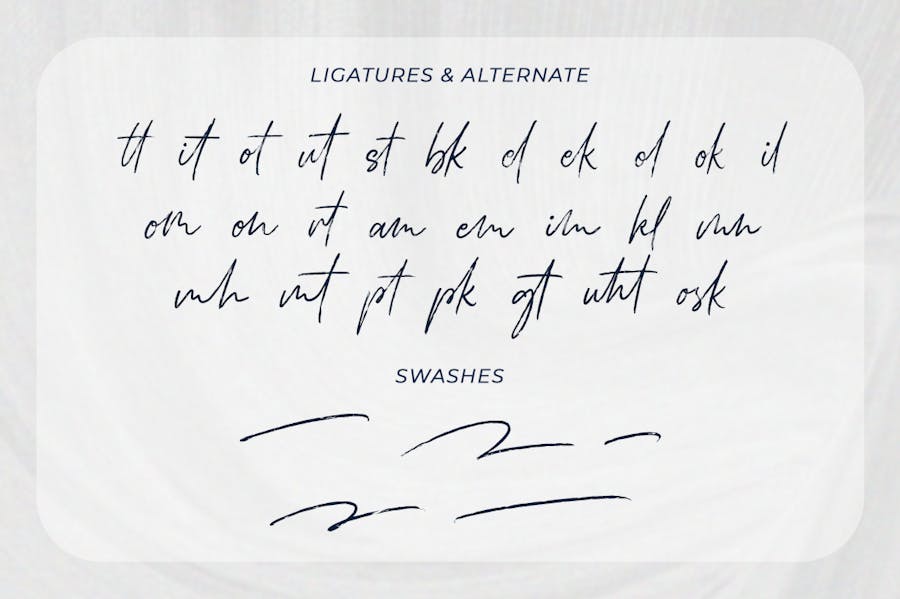 LIGATURES & ALTERNATE
tt it ot ut st bk el ek ol ok il
om on rt am em im kl mn
mh mt pt pk gt utt osk
SWASHES